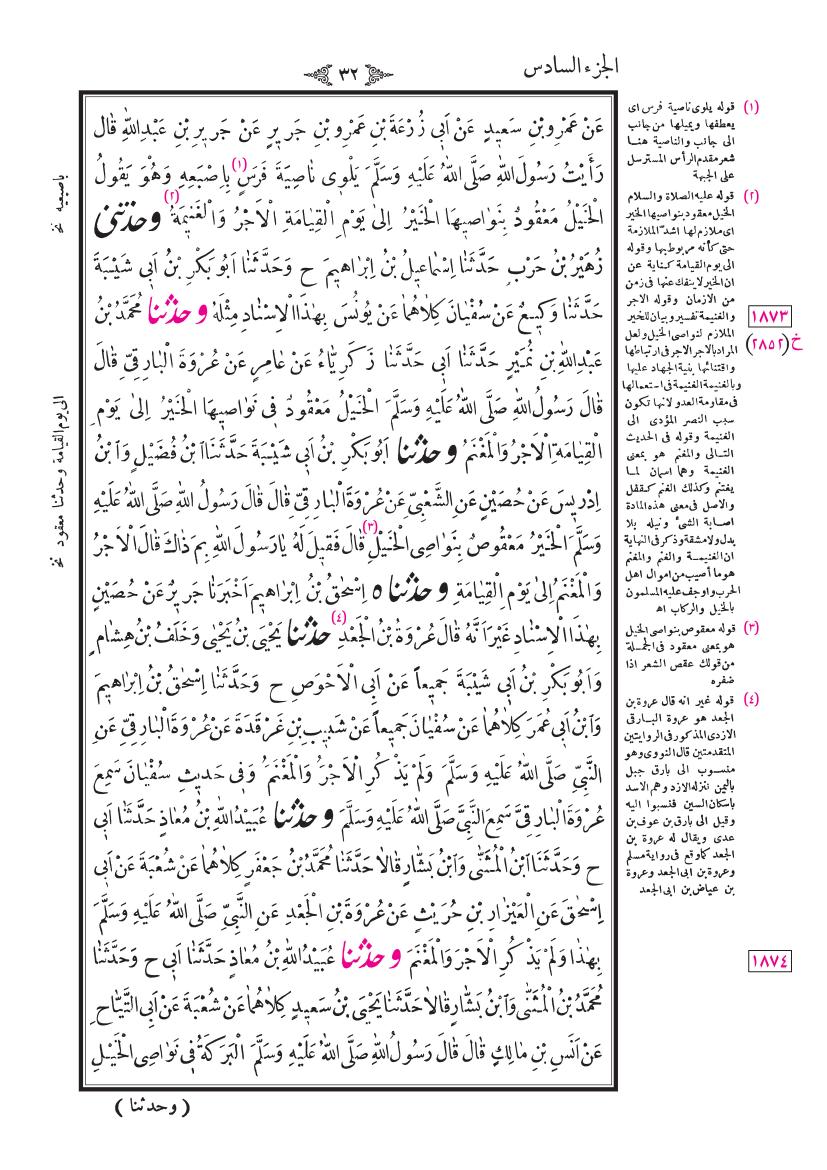 الجزء السادس
٣٢
عَنْ عَمْرِو بْنِ سَعِيدٍ عَنْ اَبِي زُرْعَةَ بْنِ عَمْرِو بْنِ جَرِيرٍ عَنْ جَرِيرِ بْنِ عَبْدِاللّٰهِ قَالَ
رَأَيْتُ رَسُولَ اللّٰهِ صَلَّى اللّٰهُ عَلَيْهِ وَسَلَّمَ يَلْوِى نَاصِيَةَ فَرَسٍ (١) بِاِصْبَعِهِ وَهُوَ يَقُولُ
الْخَيْلُ مَعْقُودٌ بِنَوَاصِيهَا الْخَيْرُ اِلىٰ يَوْمِ الْقِيَامَةِ الْاَجْرُ وَالْغَنِيمَةُ (٢) وَحَدَّثَنِى
زُهَيْرُ بْنُ حَرْبٍ حَدَّثَنَا اِسْمَاعِيلُ بْنُ اِبْرَاهِيمَ ح وَحَدَّثَنَا اَبُو بَكْرِ بْنُ اَبِي شَيْبَةَ
حَدَّثَنَا وَكِيعٌ عَنْ سُفْيَانَ كِلَاهُمَا عَنْ يُونُسَ بِهٰذَا الْاِسْنَادِ مِثْلَهُ وَحَدَّثَنَا مُحَمَّدُ بْنُ
عَبْدِاللّٰهِ بْنِ نُمَيْرٍ حَدَّثَنَا اَبِي حَدَّثَنَا زَكَرِيَّاءُ عَنْ عَامِرٍ عَنْ عُرْوَةَ الْبَارِقِيِّ قَالَ
قَالَ رَسُولُ اللّٰهِ صَلَّى اللّٰهُ عَلَيْهِ وَسَلَّمَ الْخَيْلُ مَعْقُودٌ فِي نَوَاصِيهَا الْخَيْرُ اِلىٰ يَوْمِ
الْقِيَامَةِ الْاَجْرُ وَالْمَغْنَمُ وَحَدَّثَنَا اَبُو بَكْرِ بْنُ اَبِي شَيْبَةَ حَدَّثَنَا ابْنُ فُضَيْلٍ وَابْنُ
اِدْرِيسَ عَنْ حُصَيْنٍ عَنِ الشَّعْبِيِّ عَنْ عُرْوَةَ الْبَارِقِيِّ قَالَ قَالَ رَسُولُ اللّٰهِ صَلَّى اللّٰهُ عَلَيْهِ
وَسَلَّمَ الْخَيْرُ مَعْقُوصٌ بِنَوَاصِي الْخَيْلِ (٣) قَالَ فَقِيلَ لَهُ يَا رَسُولَ اللّٰهِ بِمَ ذَاكَ قَالَ الْاَجْرُ
وَالْمَغْنَمُ اِلىٰ يَوْمِ الْقِيَامَةِ وَحَدَّثَنَاه اِسْحٰقُ بْنُ اِبْرَاهِيمَ اَخْبَرَنَا جَرِيرٌ عَنْ حُصَيْنٍ
بِهٰذَا الْاِسْنَادِ غَيْرَ اَنَّهُ قَالَ عُرْوَةُ بْنُ الْجَعْدِ (٤) حَدَّثَنَا يَحْيَى بْنُ يَحْيٰى وَخَلَفُ بْنُ هِشَامٍ
وَاَبُو بَكْرِ بْنُ اَبِي شَيْبَةَ جَمِيعاً عَنْ اَبِي الْاَحْوَصِ ح وَحَدَّثَنَا اِسْحٰقُ بْنُ اِبْرَاهِيمَ
وَابْنُ اَبِي عُمَرَ كِلَاهُمَا عَنْ سُفْيَانَ جَمِيعاً عَنْ شَبِيبِ بْنِ غَرْقَدَةَ عَنْ عُرْوَةَ الْبَارِقِيِّ عَنِ
النَّبِيِّ صَلَّى اللّٰهُ عَلَيْهِ وَسَلَّمَ وَلَمْ يَذْكُرِ الْاَجْرَ وَالْمَغْنَمَ وَفِي حَدِيثِ سُفْيَانَ سَمِعَ
عُرْوَةَ الْبَارِقِيَّ سَمِعَ النَّبِيَّ صَلَّى اللّٰهُ عَلَيْهِ وَسَلَّمَ وَحَدَّثَنَا عُبَيْدُاللّٰهِ بْنُ مُعَاذٍ حَدَّثَنَا اَبِي
ح وَحَدَّثَنَا ابْنُ الْمُثَنّٰى وَابْنُ بَشَّارٍ قَالَا حَدَّثَنَا مُحَمَّدُ بْنُ جَعْفَرٍ كِلَاهُمَا عَنْ شُعْبَةَ عَنْ اَبِي
اِسْحٰقَ عَنِ الْعَيْزَارِ بْنِ حُرَيْثٍ عَنْ عُرْوَةَ بْنِ الْجَعْدِ عَنِ النَّبِيِّ صَلَّى اللّٰهُ عَلَيْهِ وَسَلَّمَ
بِهٰذَا وَلَمْ يَذْكُرِ الْاَجْرَ وَالْمَغْنَمَ وَحَدَّثَنَا عُبَيْدُاللّٰهِ بْنُ مُعَاذٍ حَدَّثَنَا اَبِي ح وَحَدَّثَنَا
مُحَمَّدُ بْنُ الْمُثَنّٰى وَابْنُ بَشَّارٍ قَالَا حَدَّثَنَا يَحْيَى بْنُ سَعِيدٍ كِلَاهُمَا عَنْ شُعْبَةَ عَنْ اَبِي التَّيَّاحِ
عَنْ اَنَسِ بْنِ مَالِكٍ قَالَ قَالَ رَسُولُ اللّٰهِ صَلَّى اللّٰهُ عَلَيْهِ وَسَلَّمَ الْبَرَكَةُ فِي نَوَاصِي الْخَيْلِ
( وحدثنا )
(١) قوله يلوى ناصية فرس اى
يعطفها ويميلها من جانب
الى جانب والناصية هنا
شعر مقدم الرأس المسترسل
على الجبهة
(٢) قوله عليه الصلاة والسلام
الخيل معقود بنواصيها الخير
اى ملازم لها اشد الملازمة
حتى كأنه مربوط بها وقوله
الى يوم القيامة كناية عن
ان الخير لا ينفك عنها فى زمن
من الازمان وقوله الاجر
والغنيمة تفسير وبيان للخير
الملازم لنواصى الخيل ولعل
المراد بالاجر الاجر فى ارتباطها
واقتنائها بنية الجهاد عليها
وبالغنيمة الغنيمة فى استعمالها
فى مقاومة العدو لانها تكون
سبب النصر المؤدى الى
الغنيمة وقوله فى الحديث
التالى والمغنم هو بمعنى
الغنيمة وهما اسمان لما
يغتنم وكذلك الغنم كقفل
والاصل فى معنى هذه المادة
اصابة الشئ ونيله بلا
بدل ولا مشقة وذكر فى النهاية
ان الغنيمة والغنم والمغنم
هو ما أصيب من اموال اهل
الحرب واوجف عليه المسلمون
بالخيل والركاب اه
(٣) قوله معقوص بنواصى الخيل
هو بمعنى معقود فى الجملة
من قولك عقص الشعر اذا
ضفره
(٤) قوله غير انه قال عروة بن
الجعد هو عروة البارقى
الازدى المذكور فى الروايتين
المتقدمتين قال النووى وهو
منسوب الى بارق جبل
باليمن نزله الازد وهم الاسد
باسكان السين فنسبوا اليه
وقيل الى بارق بن عوف بن
عدى ويقال له عروة بن
الجعد كما وقع فى رواية مسلم
وعروة بن ابى الجعد وعروة
بن عياض بن ابى الجعد
١٨٧٣
خ (٢٨٥٢)
١٨٧٤
باصبعيه نخ
الى يوم القيامة وحدثنا معقود نخ